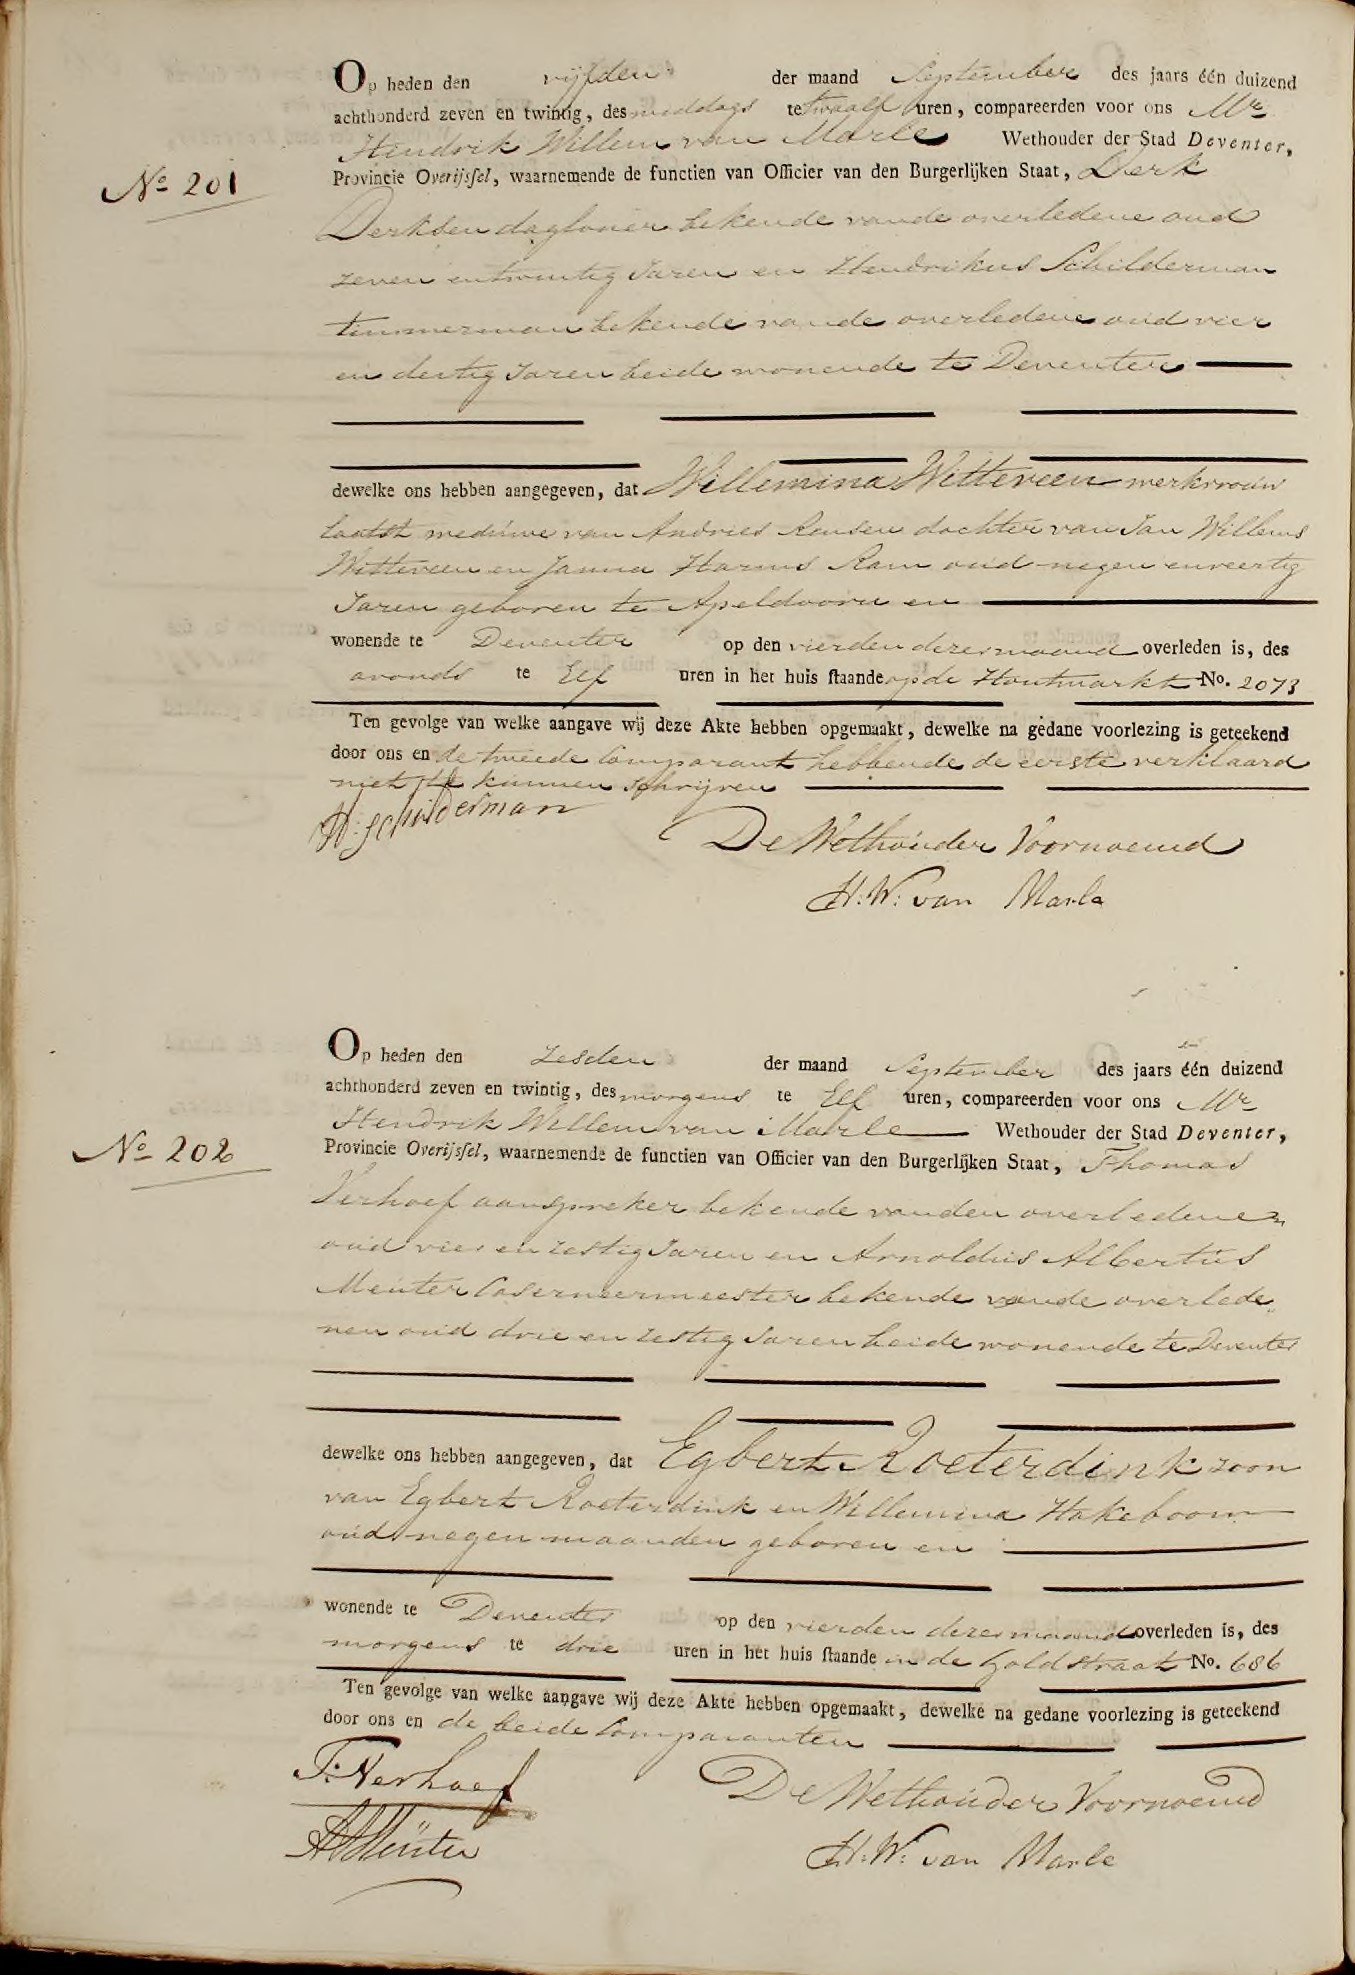 Op heden den vijfden der maand September des jaars één duizend
achthonderd zeven en twintig, des middags te twaalf uren, compareerden voor ons Mr
Hendrik Willem van Marle Wethouder der Stad Deventer,
No 201
Provincie Overijssel, waarnemende de functien van Officier van den Burgerlijken Staat, Derk
Derksen dagloner bekende vande overledene oud
zeven en twintig Jaren en Hendrikus Schilderman
timmerman bekende vande overledene oud vier
en dertig Jaren beide wonende te Deventer
dewelke ons hebben aangegeven, dat Willemina Witteveen werkvrouw
laatst weduwe van Andries Rensen dochter van Jan Willems
Witteveen en Janna Harms Ram oud negen en veertig
Jaren geboren te Apeldoorn en
wonende te Deventer op den vierden dezer maand overleden is, des
avonds te Elf uren in het huis staande op de Houtmarkt No. 2073
Ten gevolge van welke aangave wij deze Akte hebben opgemaakt, dewelke na gedane voorlezing is geteekend
door ons en de tweede Comparant hebbende de eerste verklaard
niet te kunnen schrijven
H: Schilderman
De Wethouder Voornoemd
H: W: van Marle
Op heden den zesden der maand September des jaars één duizend
achthonderd zeven en twintig, des morgens te Elf uren, compareerden voor ons Mr
Hendrik Willem van Marle Wethouder der Stad Deventer,
No 202
Provincie Overijssel, waarnemende de functien van Officier van den Burgerlijken Staat, Thomas
Verhoef aanspreker bekende vanden overledenen
oud vier en zestig Jaren en Arnoldus Albertus
Meuter Caserneermeester bekende vande overlede„
nen oud drie en zestig Jaren beide wonende te Deventer
dewelke ons hebben aangegeven, dat Egbert Roeterdink zoon
van Egbert Roeterdink en Willemina Hakeboom
oud negen maanden geboren en
wonende te Deventer op den vierden dezer maand overleden is, des
morgens te drie uren in het huis staande in de Goldstraat No. 686
Ten gevolge van welke aangave wij deze Akte hebben opgemaakt, dewelke na gedane voorlezing is geteekend
door ons en de beide Comparanten
T: Verhoef
De Wethouder Voornoemd
AA Meüter
H: W: van Marle